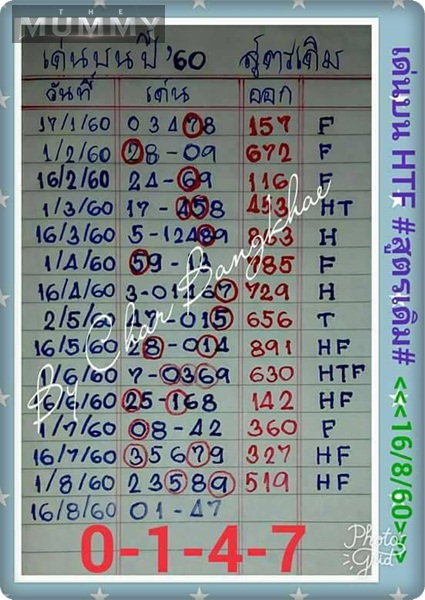 THE
MUMMY
เด่นบนปี '60 สูตรเดิม
วันที่ เด่น ออก
17/1/60 03478 157 F
1/2/60 28-09 672 F
16/2/60 24-69 116 F
1/3/60 17-458 453 HT
16/3/60 5-12489 863 H
1/4/60 59- 785 F
16/4/60 3-01467 729 H
2/5/60 47-015 656 T
16/5/60 28-014 891 HF
/6/60 7-0369 630 HTF
/6/60 25-168 142 HF
1/7/60 08-42 360 F
16/7/60 35679 327 HF
1/8/60 23589 519 HF
16/8/60 01-47
0-1-4-7
By Char Bangkhae
เด่นบน HTF #สูตรเดิม# <<<16/8/60>>>
Photo
Grid